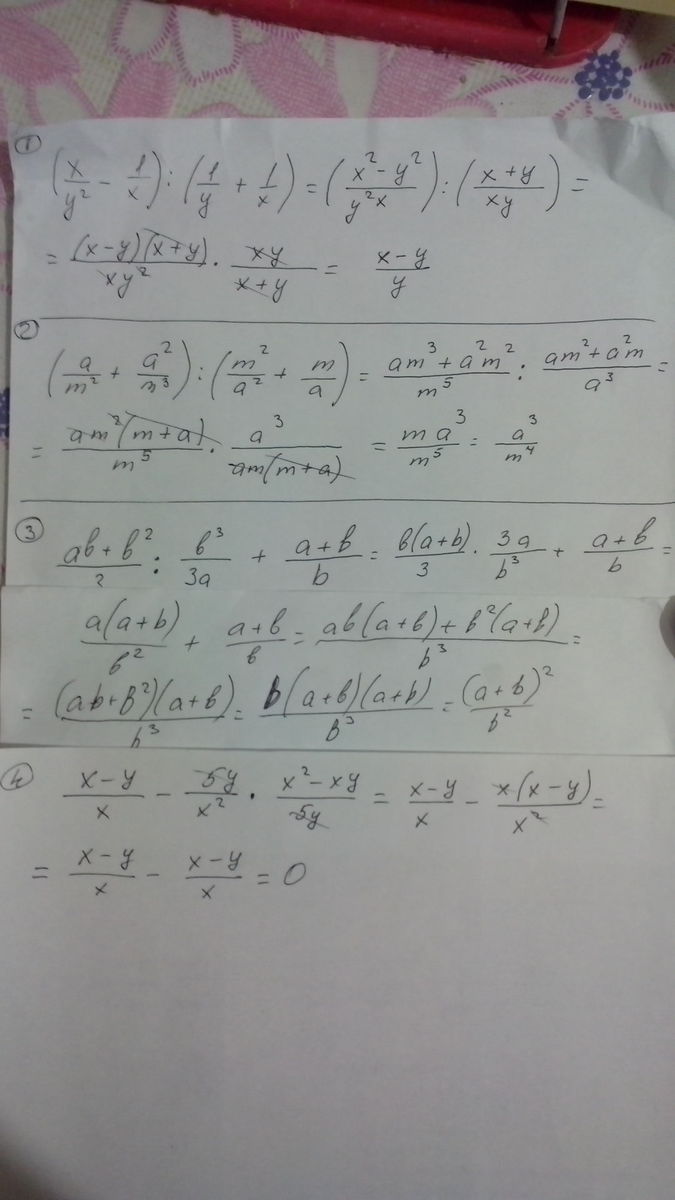 ① (x/y² − 1/x) : (1/y + 1/x) = ((x² − y²)/(y²x)) : ((x + y)/(xy)) =
= ((x − y)(x + y))/(xy²) · (xy)/(x + y) = (x − y)/y
② (a/m² + a²/m³) : (m²/a² + m/a) = (am³ + a²m²)/m⁵ : (am² + a²m)/a³ =
= (am²(m + a))/m⁵ · a³/(am(m + a)) = (ma³)/m⁵ = a³/m⁴
③ (ab + b²)/3 : b³/(3a) + (a + b)/b = (b(a + b))/3 · 3a/b³ + (a + b)/b =
(a(a + b))/b² + (a + b)/b = (ab(a + b) + b²(a + b))/b³ =
= ((ab + b²)(a + b))/b³ = (b(a + b)(a + b))/b³ = (a + b)²/b²
④ (x − y)/x − 5y/x² · (x² − xy)/5y = (x − y)/x − (x(x − y))/x² =
= (x − y)/x − (x − y)/x = 0